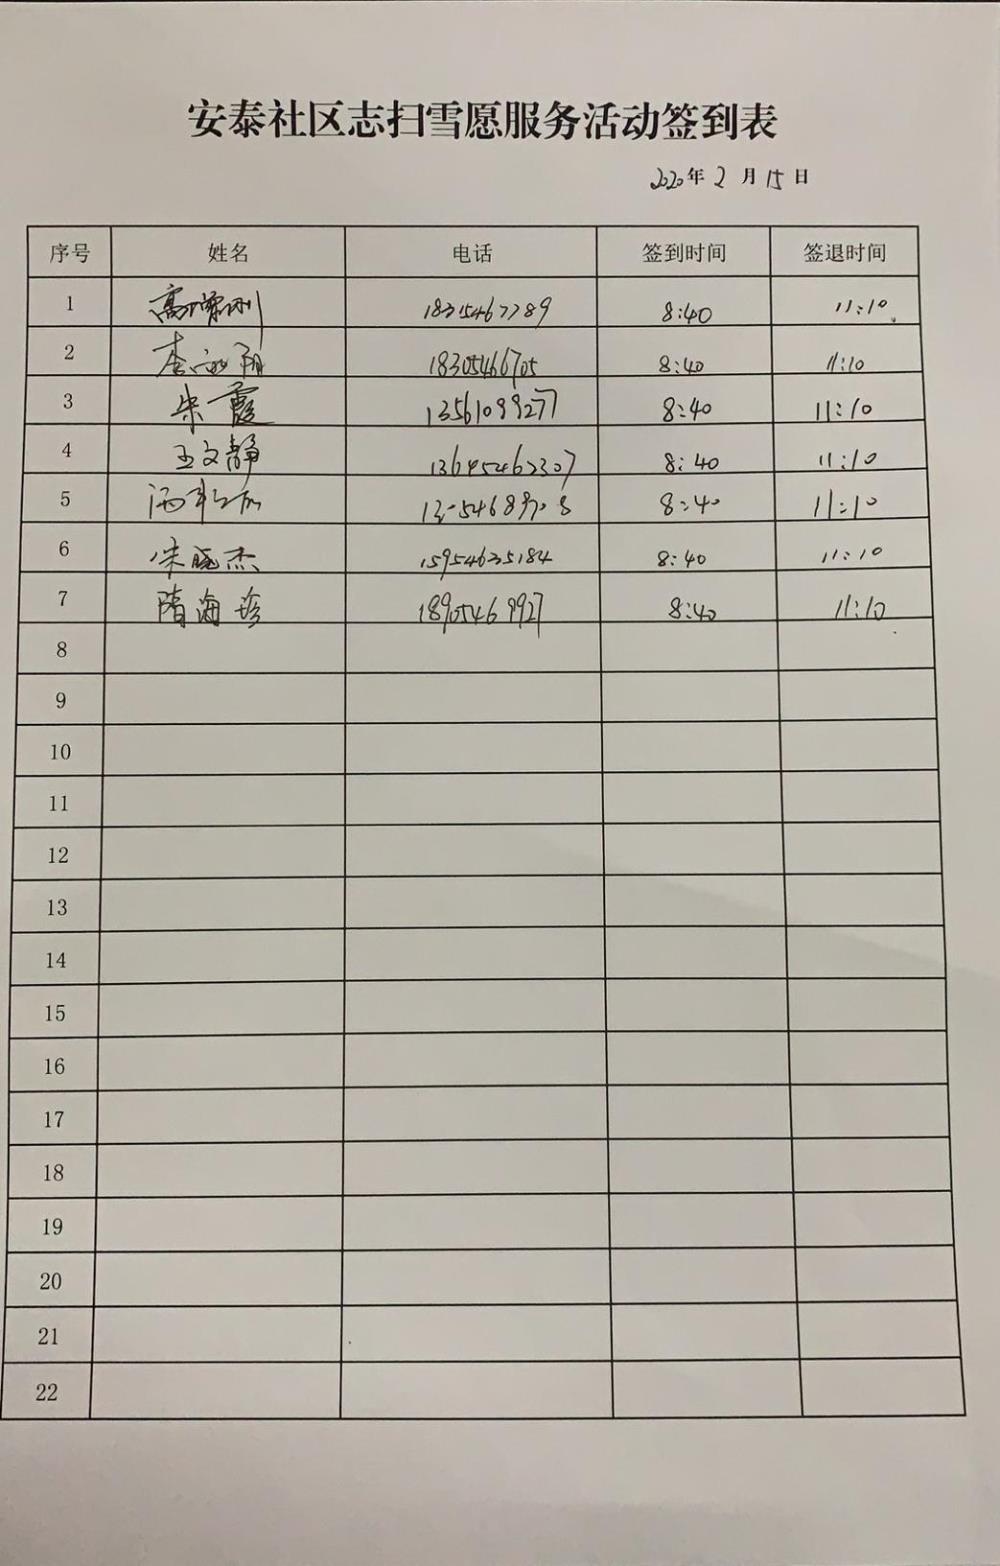 安泰社区志扫雪愿服务活动签到表
2020年2月15日
序号 姓名 电话 签到时间 签退时间
1 18315467789 8:40 11:10
2 李 18305466705 8:40 11:10
3 朱霞 13561099277 8:40 11:10
4 王文静 13645467307 8:40 11:10
5 8:40 11:10
6 宋晓杰 15954635184 8:40 11:10
7 隋海珍 18905469927 8:40 11:10
8
9
10
11
12
13
14
15
16
17
18
19
20
21
22